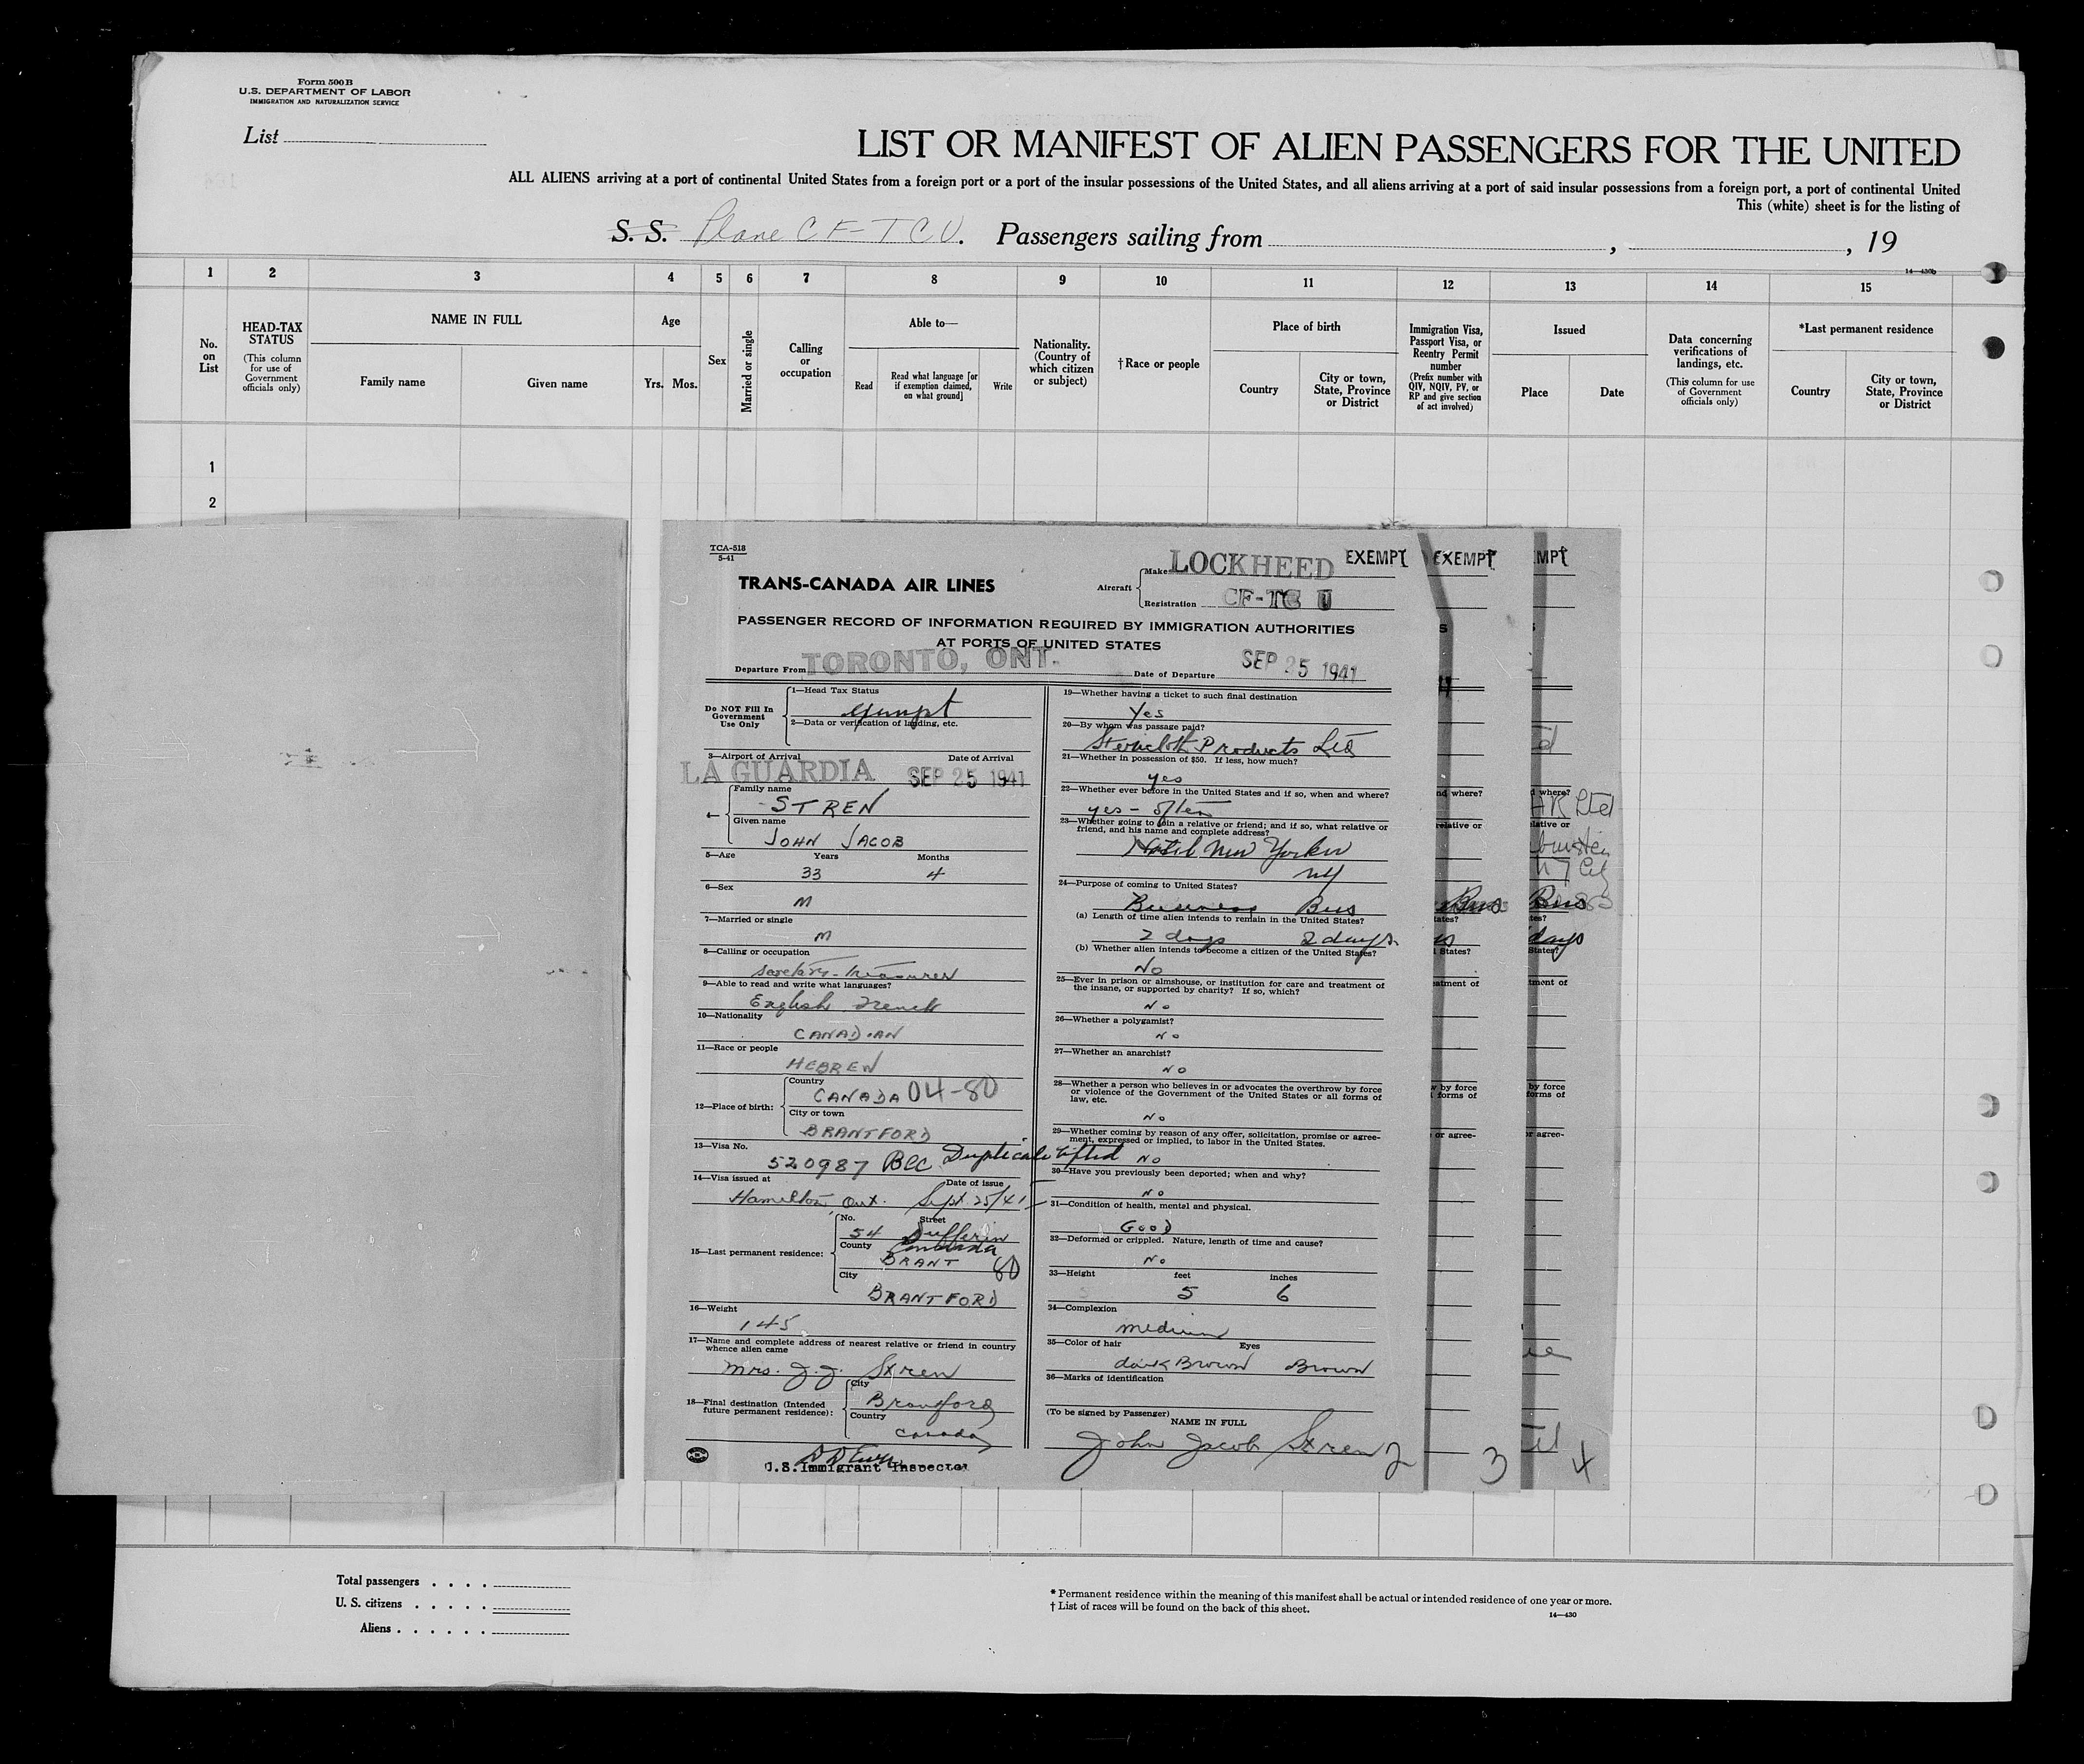 Form 500 B
U.S. DEPARTMENT OF LABOR
IMMIGRATION AND NATURALIZATION SERVICE
List
LIST OR MANIFEST OF ALIEN PASSENGERS FOR THE UNITED
ALL ALIENS arriving at a port of continental United States from a foreign port or a port of the insular possessions of the United States, and all aliens arriving at a port of said insular possessions from a foreign port, a port of continental United
This (white) sheet is for the listing of
S. S. Plane CF-TCU. Passengers sailing from , , 19
14—430b
1 2 3 4 5 6 7 8 9 10 11 12 13 14 15
No. on List
HEAD-TAX STATUS
(This column for use of Government officials only)
NAME IN FULL
Family name Given name
Age
Yrs. Mos.
Sex
Married or single
Calling or occupation
Able to—
Read
Read what language [or if exemption claimed, on what ground]
Write
Nationality. (Country of which citizen or subject)
†Race or people
Place of birth
Country
City or town, State, Province or District
Immigration Visa, Passport Visa, or Reentry Permit number
(Prefix number with QIV, NQIV, PV, or RP and give section of act involved)
Issued
Place Date
Data concerning verifications of landings, etc.
(This column for use of Government officials only)
*Last permanent residence
Country
City or town, State, Province or District
1
2
TCA-518
5-41
TRANS-CANADA AIR LINES
Aircraft
Make LOCKHEED
Registration CF-TC U
EXEMPT EXEMPT MPT
PASSENGER RECORD OF INFORMATION REQUIRED BY IMMIGRATION AUTHORITIES
AT PORTS OF UNITED STATES
Departure From TORONTO, ONT. Date of Departure SEP 25 1941
Do NOT Fill In Government Use Only
1—Head Tax Status
Exempt
2—Data or verification of landing, etc.
3—Airport of Arrival Date of Arrival
LA GUARDIA SEP 25 1941
4—
Family name
STREN
Given name
JOHN JACOB
5—Age Years Months
33 4
6—Sex
M
7—Married or single
M
8—Calling or occupation
Secretary-Treasurer
9—Able to read and write what languages?
English French
10—Nationality
CANADIAN
11—Race or people
HEBREW
12—Place of birth:
Country
CANADA 04-80
City or town
BRANTFORD
13—Visa No.
520987 BCC Duplicate lifted
14—Visa issued at Date of issue
Hamilton, Ont. Sept. 25/41
15—Last permanent residence:
No. Street
54 Dufferin
County Canada
BRANT 80
City
BRANTFORD
16—Weight
145
17—Name and complete address of nearest relative or friend in country whence alien came
Mrs. J. J. Stren
18—Final destination (Intended future permanent residence):
City
Brantford
Country
Canada
U.S. Immigrant Inspector
19—Whether having a ticket to such final destination
Yes
20—By whom was passage paid?
Products Ltd
21—Whether in possession of $50. If less, how much?
yes
22—Whether ever before in the United States and if so, when and where?
yes - often
23—Whether going to join a relative or friend; and if so, what relative or friend, and his name and complete address?
Hotel New Yorker
NY
24—Purpose of coming to United States?
Business Bus
(a) Length of time alien intends to remain in the United States?
2 days 2 days.
(b) Whether alien intends to become a citizen of the United States?
No
25—Ever in prison or almshouse, or institution for care and treatment of the insane, or supported by charity? If so, which?
No
26—Whether a polygamist?
No
27—Whether an anarchist?
NO
28—Whether a person who believes in or advocates the overthrow by force or violence of the Government of the United States or all forms of law, etc.
No
29—Whether coming by reason of any offer, solicitation, promise or agreement, expressed or implied, to labor in the United States.
No
30—Have you previously been deported; when and why?
No
31—Condition of health, mental and physical.
GOOD
32—Deformed or crippled. Nature, length of time and cause?
No
33—Height feet inches
5 6
34—Complexion
medium
35—Color of hair Eyes
dark Brown Brown
36—Marks of identification
(To be signed by Passenger)
NAME IN FULL
John Jacob Stren 2
3
4
Total passengers
U. S. citizens
Aliens
* Permanent residence within the meaning of this manifest shall be actual or intended residence of one year or more.
† List of races will be found on the back of this sheet.
14—430